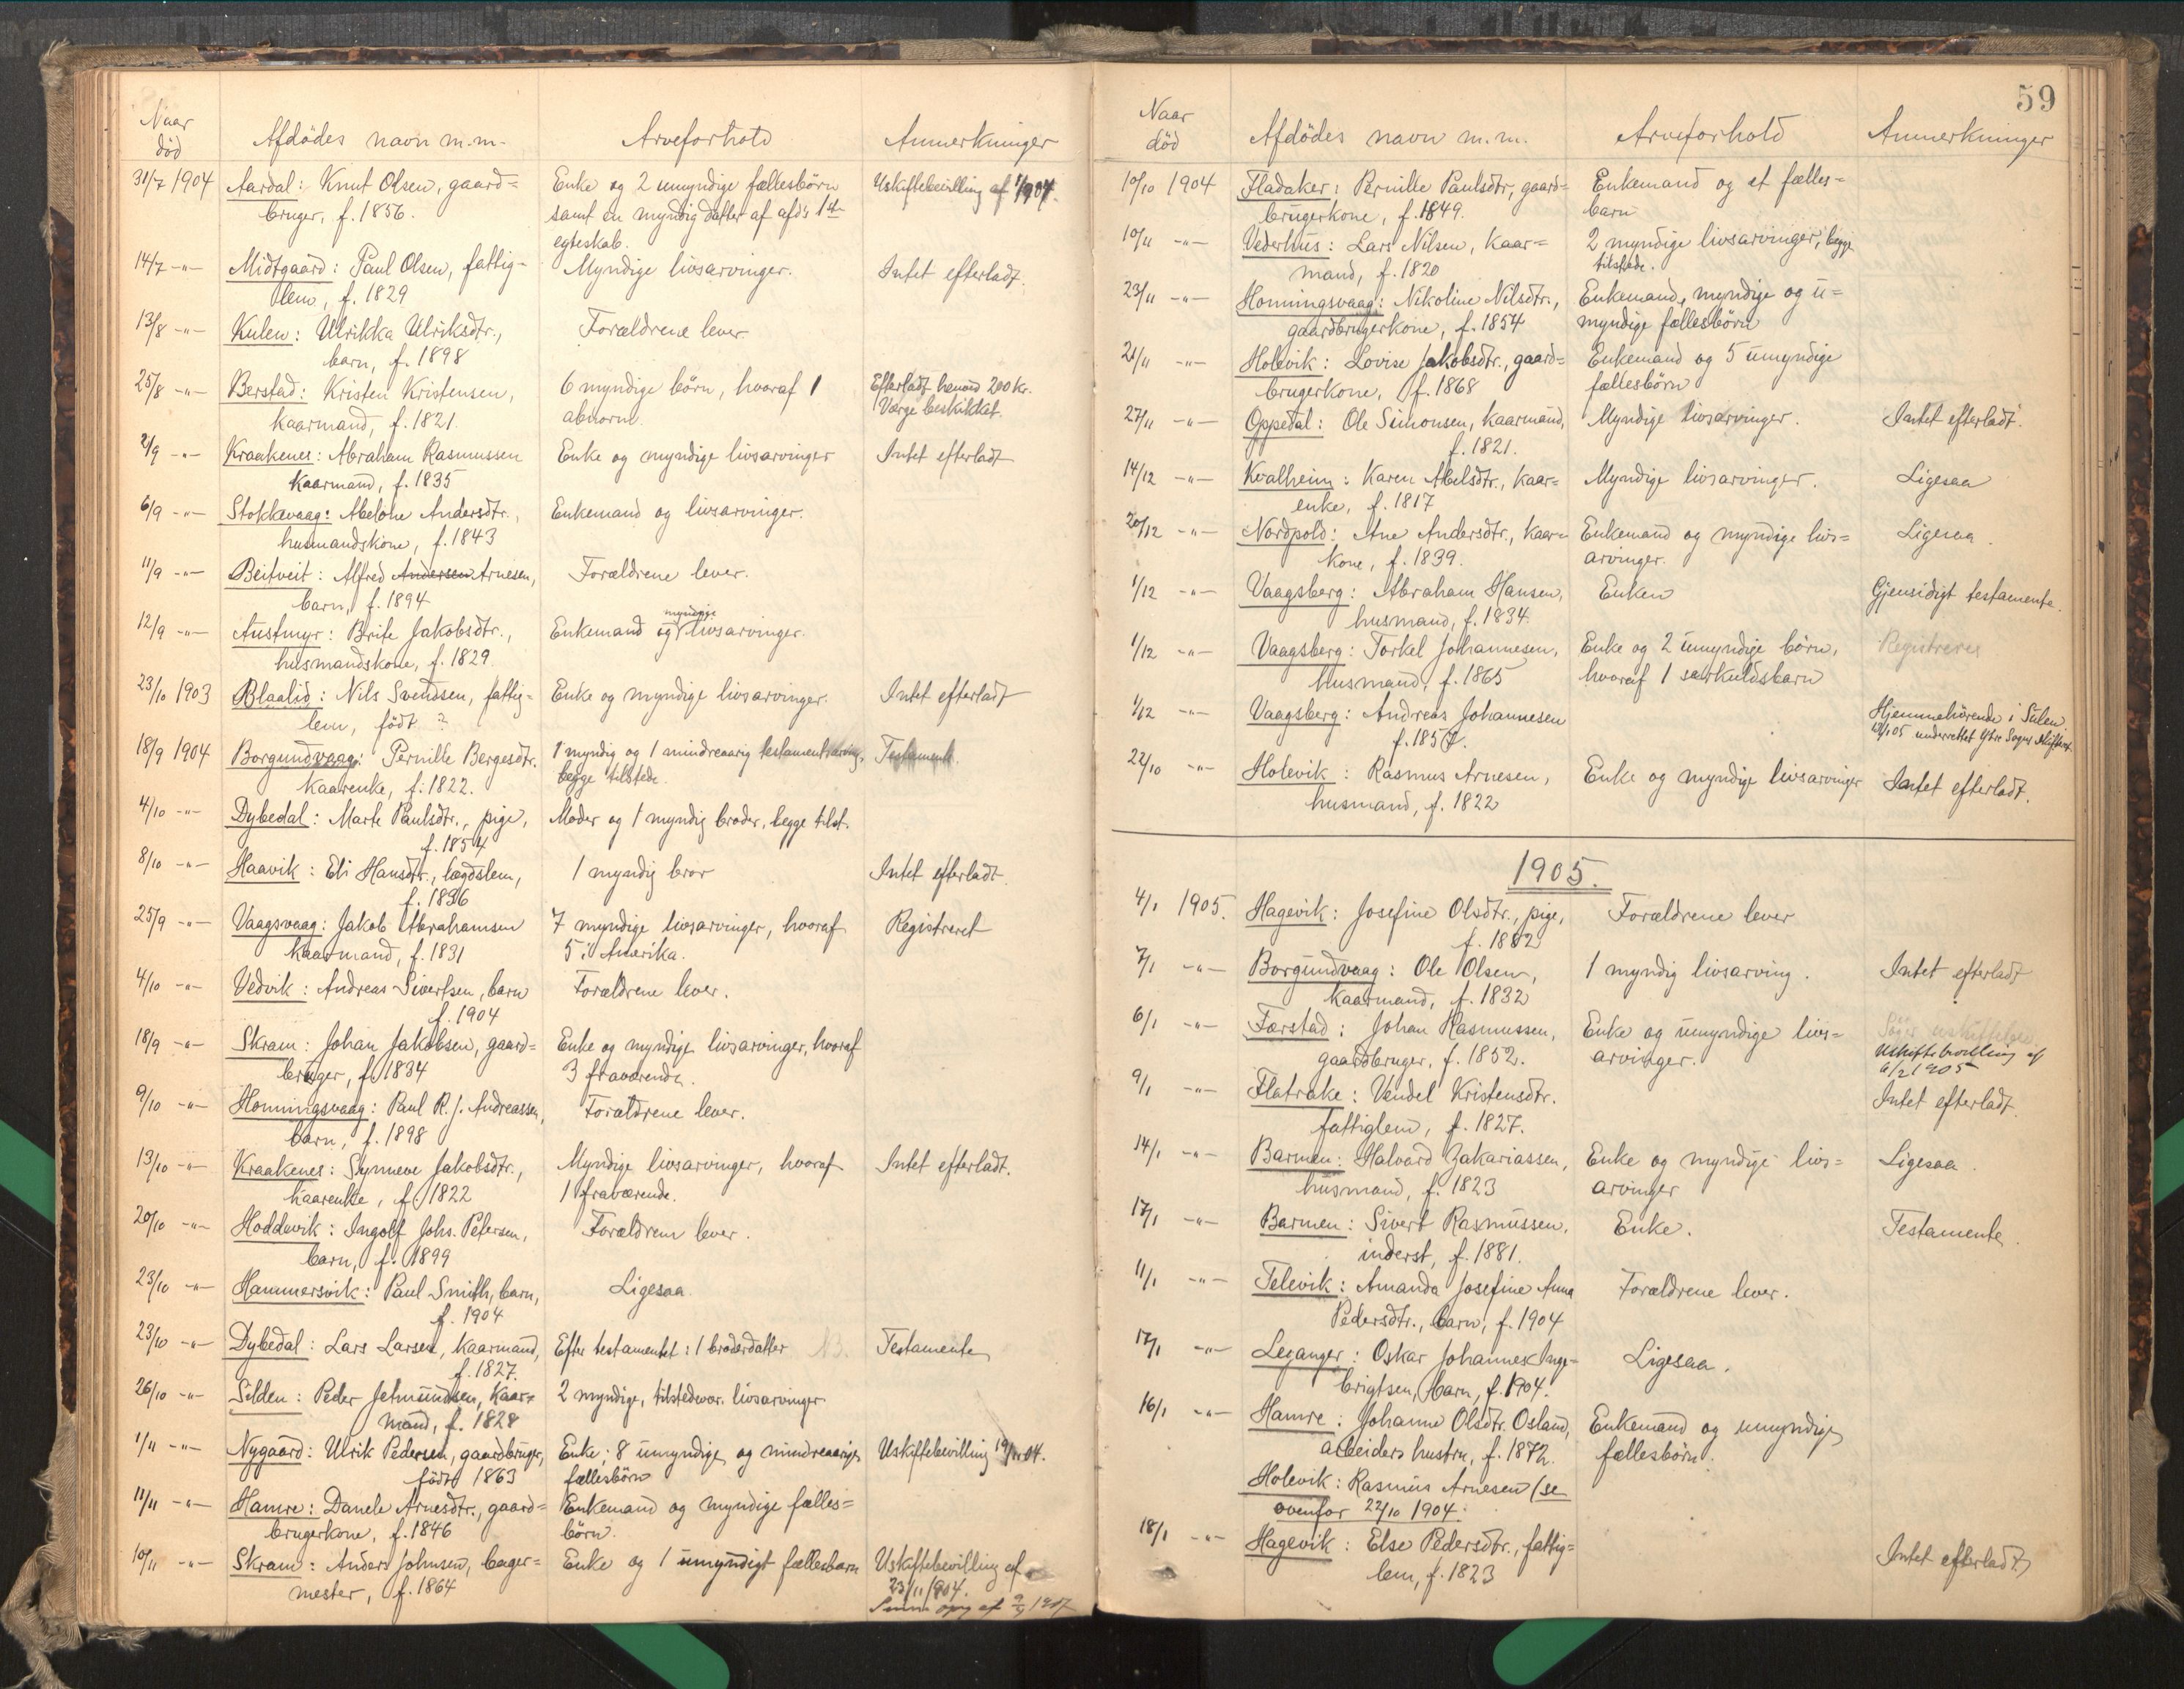 Naar død
Afdødes navn m.m.
Arveforhold
Anmerkninger
31/7 1904 Aardal: Knut Olsen, gaard= Enke og 2 umyndige fællesbörn Uskiftebevilling af
bruger, f. 1856. samt en myndig datter af afd's 1ste
egteskab.
14/7 -"- Midtgaard: Paul Olsen, fattig- Myndige livsarvinger. Intet efterladt.
lem, f. 1829
13/8 -"- Kulen: Ulrikka Ulriksdtr., Forældrene lever.
barn, f. 1898
25/8 -"- Berstad: Kristen Kristensen, 6 myndige börn, hvoraf 1 Efterladt henved 200 kr.
kaarmand, f. 1821. abnorm. Værge beskikket.
2/9 -"- Kraakenes: Abraham Rasmussen Enke og myndige livsarvinger Intet efterladt
kaarmand, f. 1835
6/9 -"- Stokkevaag: Abelone Andersdtr., Enkemand og livsarvinger.
husmandskone, f. 1843
11/9 -"- Beitveit: Alfred Andersen Arnesen, Forældrene lever.
barn, f. 1894
12/9 -"- Austmyr: Brite Jakobsdtr., Enkemand og myndige livsarvinger.
husmandskone, f. 1829.
23/10 1903 Blaalid: Nils Svendsen, fattig- Enke og myndige livsarvinger. Intet efterladt
lem, födt ?
18/9 1904 Borgundvaag: Pernille Bergesdtr. 1 myndig og 1 mindreaarig testamentsarving, Testament.
kaarenke, f. 1822. begge tilstede.
4/10 -"- Dybedal: Marte Paulsdtr., pige, Moder og 1 myndig broder, begge tilst.
f. 1854
8/10 -"- Haavik: Eli Hansdtr., lægdslem, 1 myndig bror Intet efterladt.
f. 1836
25/9 -"- Vaagsvaag: Jakob Abrahamsen 7 myndige livsarvinger, hvoraf Registreret
kaarmand, f. 1831 5 i Amerika.
4/10 -"- Vedvik: Andreas Sivertsen, barn Forældrene lever.
f. 1904
18/9 -"- Skram: Johan Jakobsen, gaard= Enke og myndige livsarvinger, hvoraf
bruger, f. 1834 3 fraværende.
9/10 -"- Honningsvaag: Paul R. J. Andreassen, Forældrene lever.
barn, f. 1898
13/10 -"- Kraakenes: Synneve Jakobsdtr., Myndige livsarvinger, hvoraf Intet efterladt.
kaarenke, f. 1822 1 fraværende.
20/10 -"- Hoddevik: Ingolf Johs. Petersen, Forældrene lever.
barn, f. 1899
23/10 -"- Hammersvik: Paul Smith, barn, Ligesaa
f. 1904
23/10 -"- Dybedal: Lars Larsen, kaarmand, Efter testamentet: 1 broderdatter NB. Testamente
f. 1827.
26/10 -"- Silden: Peder Jetmundsen, kaar= 2 myndige, tilstedevær. livsarvinger.
mand, f. 1828
1/11 -"- Nygaard: Ulrik Pedersen, gaardbruger, Enke; 8 umyndige og mindreaarige Uskiftebevilling
födt 1863 fællesbörn
11/11 -"- Hamre: Danele Arnesdtr., gaard= Enkemand og myndige fælles=
brugerkone, f. 1846 börn.
10/11 -"- Skram: Anders Johnsen, bager= Enke og 1 umyndigt fællesbarn Uskiftebevilling af
mester, f. 1864 23/11 1904.
1907
59
Naar død
Afdødes navn m.m.
Arveforhold
Anmerkninger
10/10 1904 Fladaker: Pernille Paulsdtr., gaard= Enkemand og et fælles=
brugerkone, f. 1849. barn
10/11 -"- Vederhus: Lars Nilsen, kaar= 2 myndige livsarvinger, begge
mand, f. 1820 tilstede.
23/11 -"- Honningsvaag: Nikoline Nilsdtr., Enkemand, myndige og u=
gaardbrugerkone, f. 1854 myndige fællesbörn
21/11 -"- Holevik: Lovise Jakobsdtr., gaard= Enkemand og 5 umyndige
brugerkone, f. 1868 fællesbörn
27/11 -"- Oppedal: Ole Simonsen, kaarmand, Myndige livsarvinger. Intet efterladt.
f. 1821.
14/12 -"- Kvalheim: Karen Abelsdtr., kaar= Myndige livsarvinger. Ligesaa
enke, f. 1817
20/12 -"- Nordpold: Ane Andersdtr., kaar= Enkemand og myndige livs= Ligesaa.
kone, f. 1839. arvinger.
1/12 -"- Vaagsberg: Abraham Hansen, Enken Gjensidigt testamente.
husmand, f. 1834.
1/12 -"- Vaagsberg: Torkel Johannesen, Enke og 2 umyndige börn, Registreres
husmand, f. 1865 hvoraf 1 særkuldsbarn
1/12 -"- Vaagsberg: Andreas Johannesen Hjemmehörende i Sulen
f. 1857. underrettet Ytre Sogns Skifteret.
22/10 -"- Holevik: Rasmus Arnesen, Enke og myndige livsarvinger Intet efterladt.
husmand, f. 1822
1905.
4/1 1905. Hagevik: Josefine Olsdtr., pige, Forældrene lever
f. 1882
7/1 -"- Borgundvaag: Ole Olsen, 1 myndig livsarving. Intet efterladt
kaarmand, f. 1832
6/1 -"- Færstad: Johan Rasmussen, Enke og umyndige livs= Söger uskiftebev.
gaardbruger, f. 1852. arvinger. Uskiftebevilling af
6/2 1905
9/1 -"- Flatrake: Vendel Kristensdtr. Intet efterladt.
fattiglem, f. 1827.
14/1 -"- Barmen: Halvard Zakariassen, Enke og myndige livs= Ligesaa.
husmand, f. 1823 arvinger
17/1 -"- Barmen: Sivert Rasmussen, Enke. Testamente.
inderst, f. 1881.
11/1 -"- Televik: Amanda Josefine Anna Forældrene lever.
Pedersdtr., barn, f. 1904
17/1 -"- Leganger: Oskar Johannes Inge- Ligesaa.
brigtsen, barn, f. 1904.
16/1 -"- Hamre: Johanne Olsdtr. Osland, Enkemand og umyndige
arbeiders hustru, f. 1872. fællesbörn.
Holevik: Rasmus Arnesen (se
ovenfor 22/10 1904.
18/1 -"- Hagevik: Else Pedersdtr., fattig= Intet efterladt
lem, f. 1823